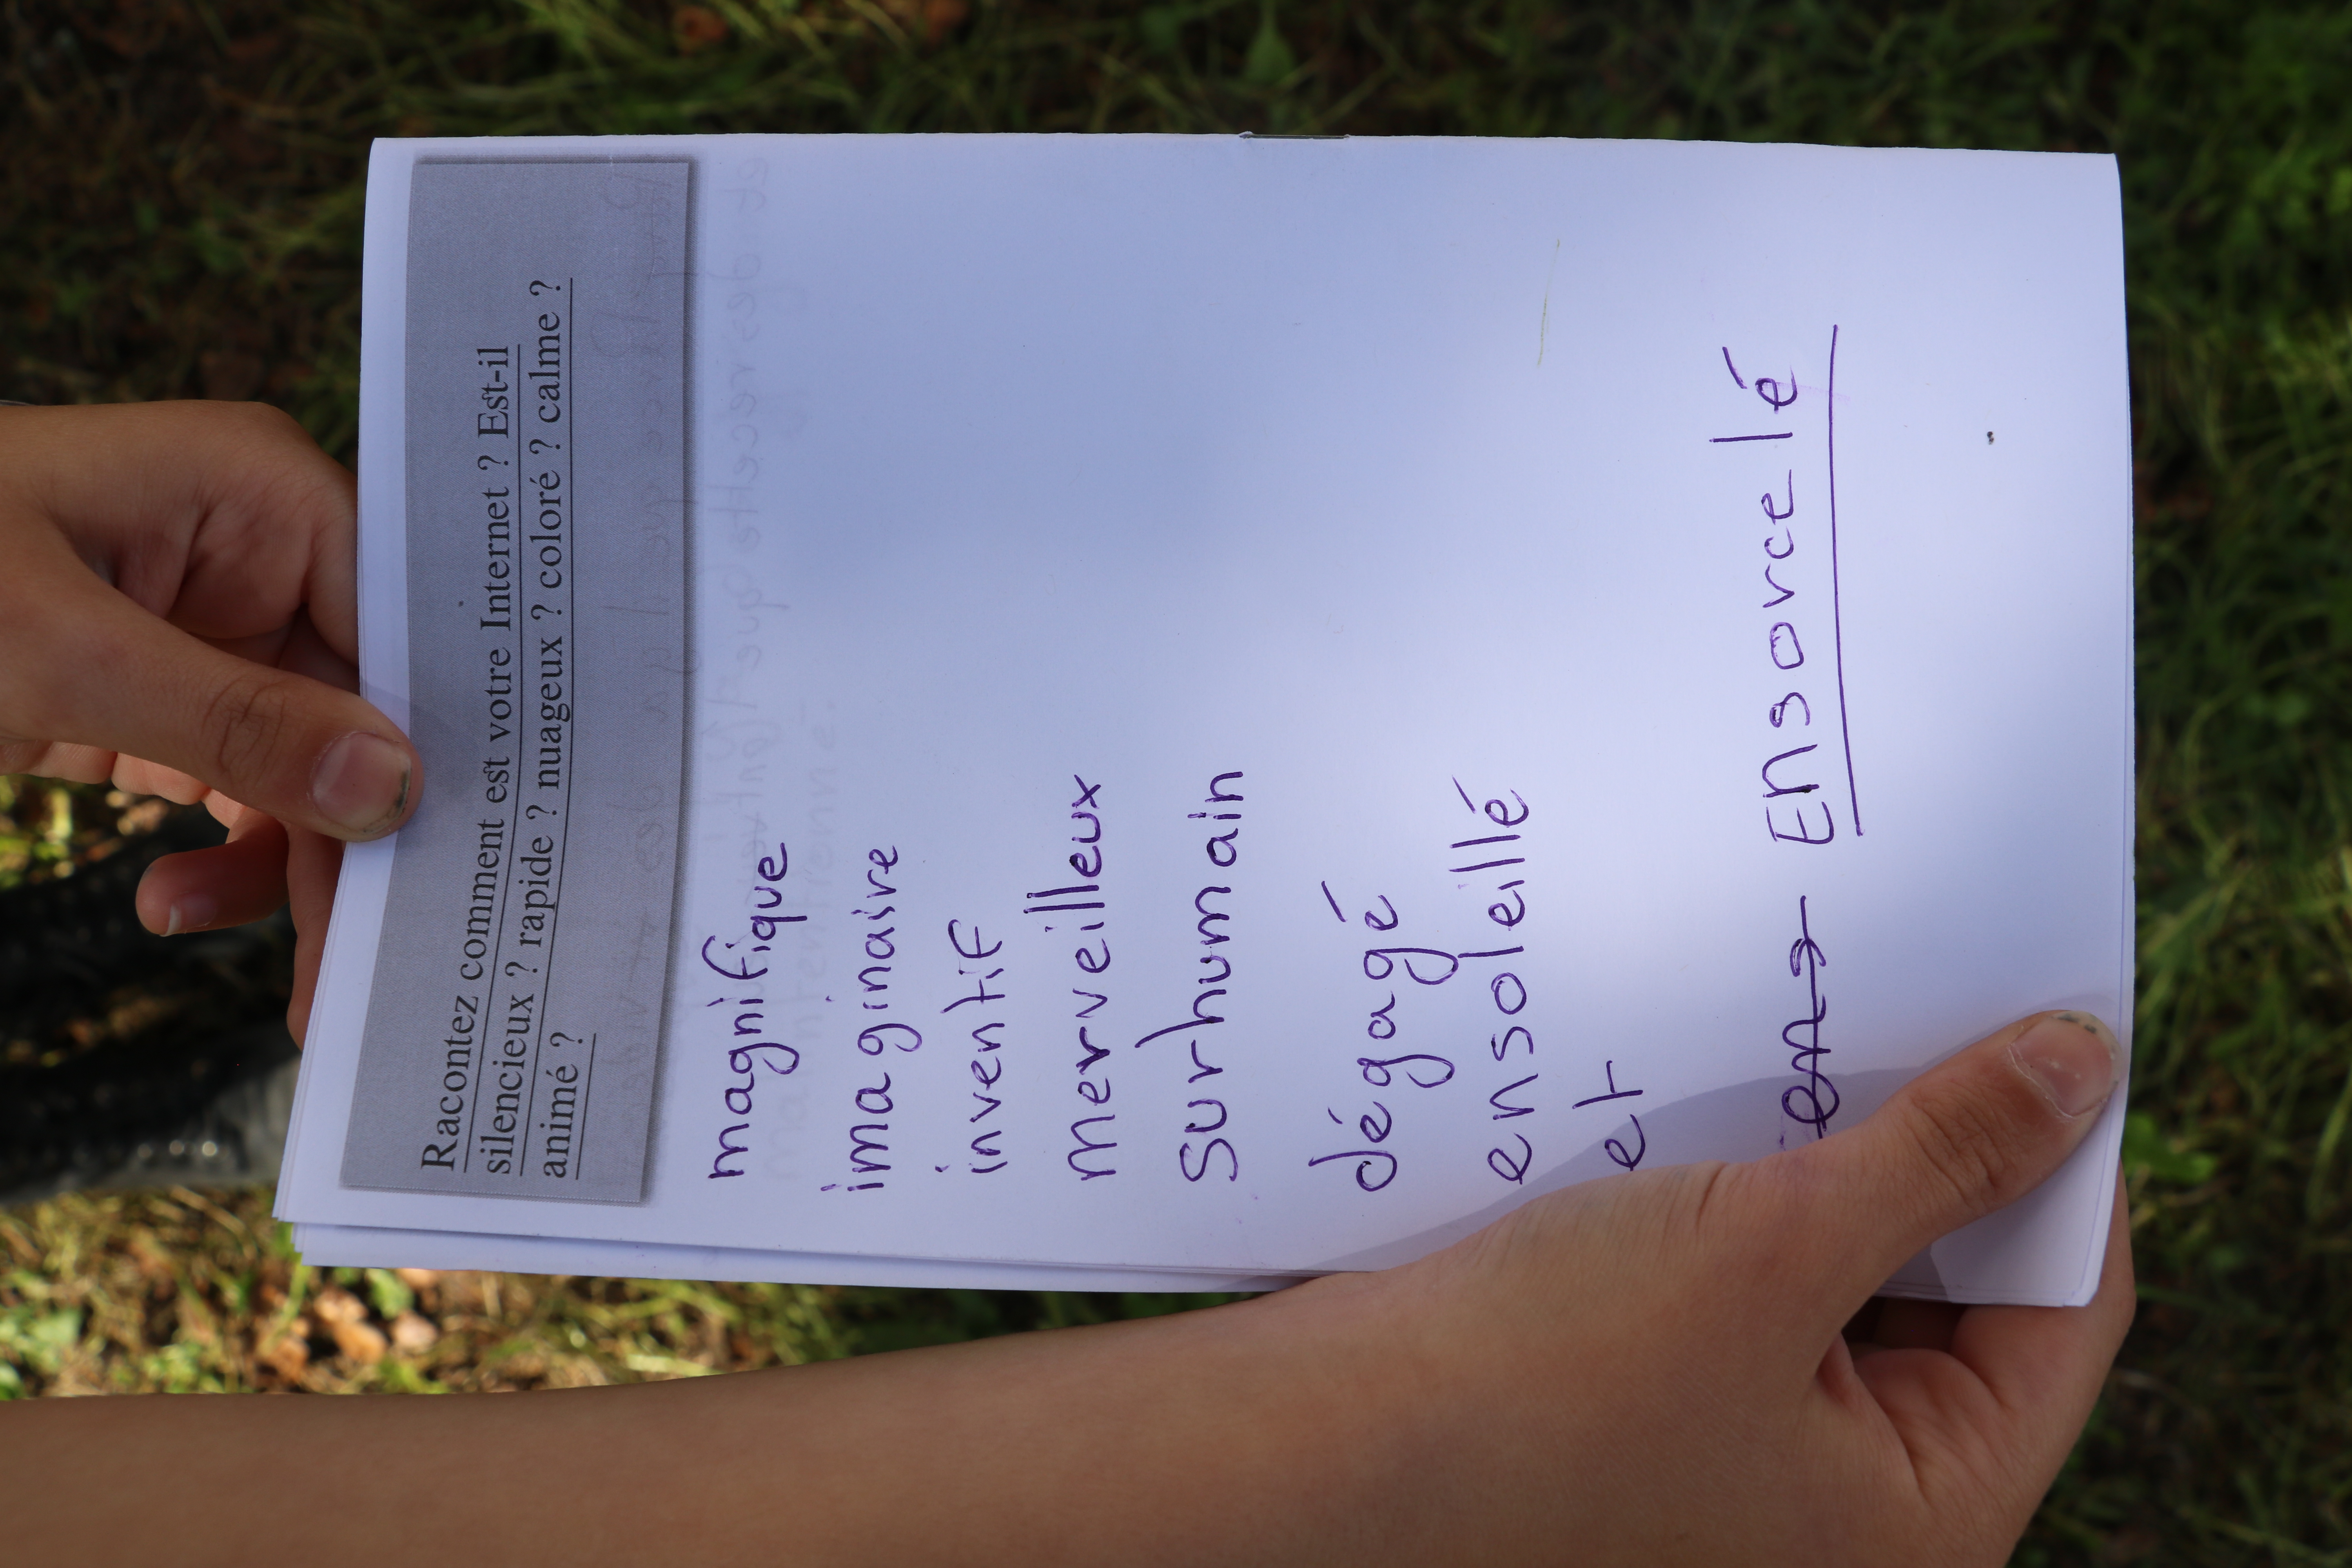 Racontez comment est votre Internet ? Est-il
silencieux ? rapide ? nuageux ? coloré ? calme ?
animé ?
magnifique
imaginaire
inventif
merveilleux
surhumain
dégagé
ensoleillé
et
ens Ensorcelé